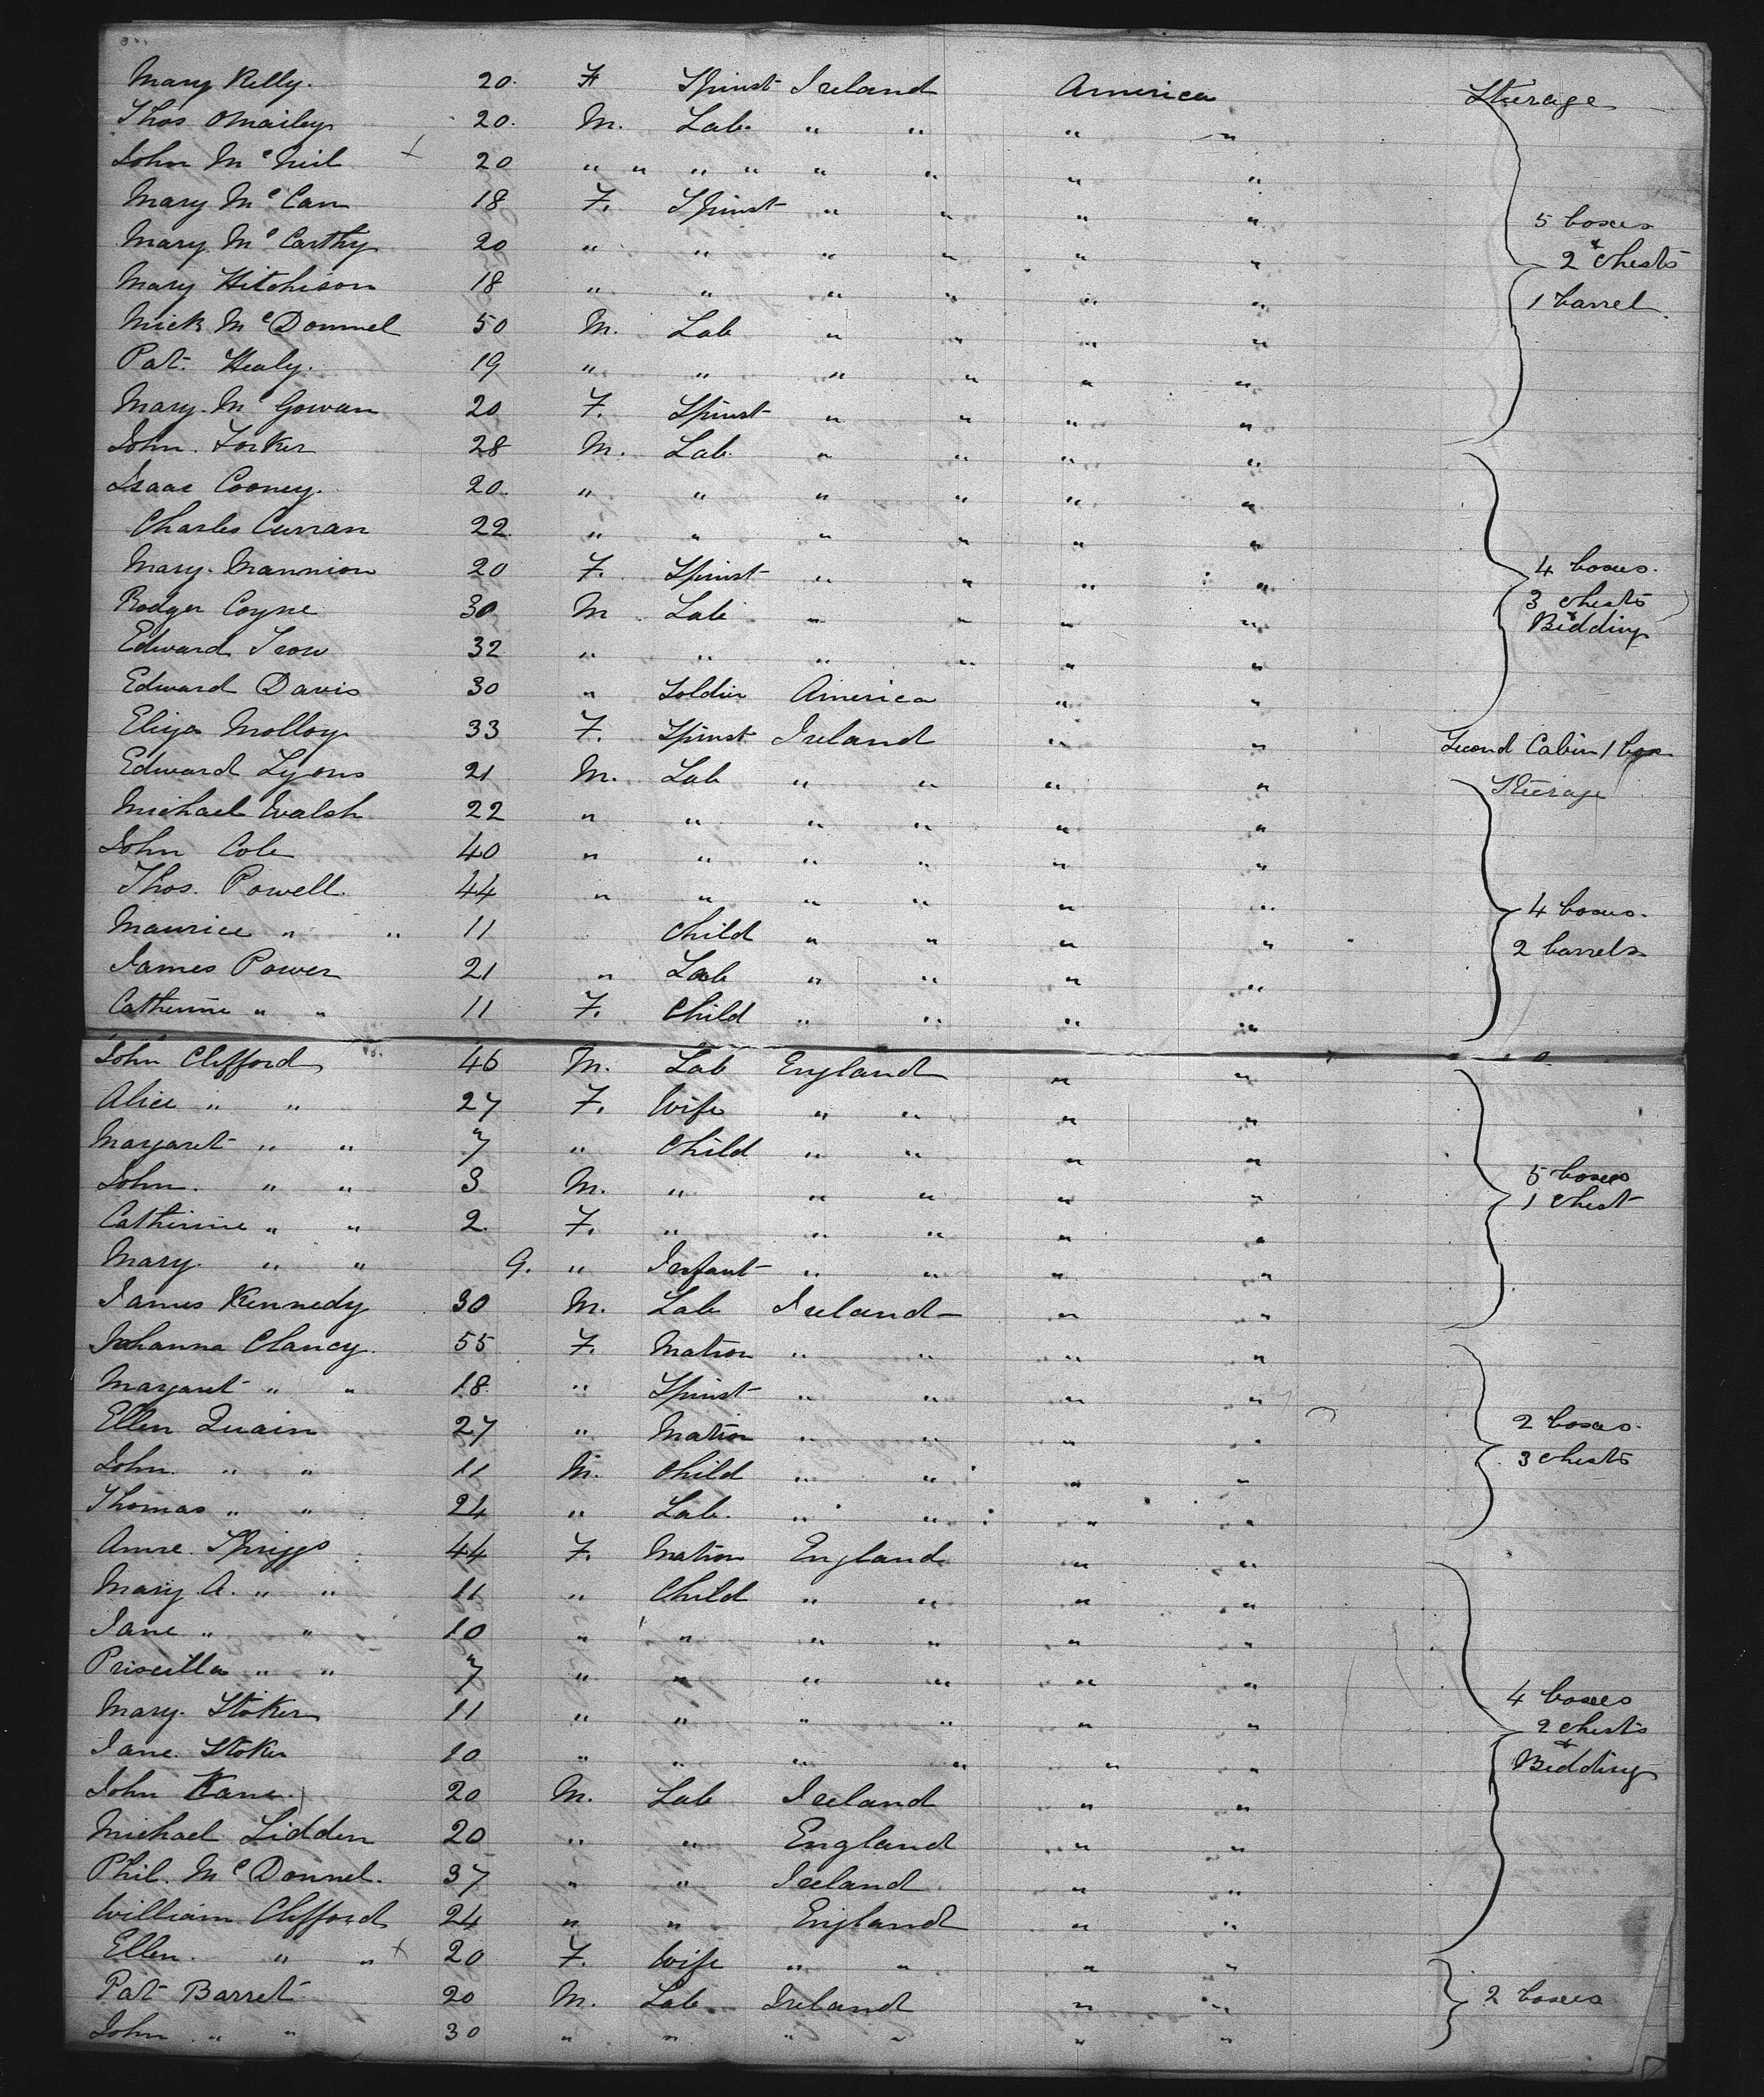 Mary Kelly. 20. F Spinst Ireland America Steerage
Thos OMailey 20. M. Lab. " " " "
John McNeil + 20 " " " " " " " "
Mary McCann 18 F. Spinst " " " " 5 boxes
Mary McCarthy 20 " " " " " " & 2 Chests
Mary Hitchison 18 " " " " " " 1 barrel.
Mick McDonnel 50 M. Lab " " " "
Pat. Healy. 19 " " " " " "
Mary McGowan 20 F. Spinst " " " "
John. Forker 28 M. Lab. " " " "
Isaac Cooney. 20. " " " " " "
Charles Curran 22. " " " " " "
Mary. Mannion 20 F. Spinst " " " " 4 boxes.
Rodger Coyne 30 M. Lab " " " " 3 Chests
Edward Trow 32 " " " " " " & Bedding
Edward Davis 30 " Soldier America " "
Eliza Molloy 33 F. Spinst Ireland " " Second Cabin 1 box
Edward Lyons 21 M. Lab " " " " Steerage
Michael Walsh 22 " " " " " "
John Cole 40 " " " " " "
Thos. Powell. 44 " " " " " " 4 boxes.
Maurice " " 11 Child " " " " 2 barrels
James Power 21 " Lab " " " "
Catherine " " 11 F. Child " " " "
John Clifford 46 M. Lab England " "
Alice " " 27 F. Wife " " " "
Margaret " " 7 " Child " " " " 5 boxes
John. " " 3 M. " " " " " 1 Chest
Catherine " " 2. F. " " " " "
Mary. " " 9. " Infant " " " "
James Kennedy 30 M. Lab Ireland " "
Johanna Clancy. 55 F. Matron " " " "
Margaret " " 18. " Spinst " " " "
Ellen Quain 27 " Matron " " " " 2 boxes.
John. " " 11 M. Child " " " " 3 Chests
Thomas " " 24 " Lab. " " " "
Anne. Spriggs 44 F. Matron England " "
Mary A. " " 11 " Child " " " "
Jane " " 10 " " " " " "
Priscilla " " 7 " " " " " "
Mary. Stoker 11 " " " " " " 4 boxes
Jane. Stoker 10 " " " " " " 2 Chests
John Kane. 20 M. Lab Ireland " " & Bedding
Michael Lidden 20 " " England " "
Phil. McDonnel. 37 " " Ireland " "
William Clifford 24 " " England " "
Ellen. " " + 20 F. Wife " " " "
Pat Barret 20 M. Lab Ireland " " 2 boxes
John " " 30 " " " " " "